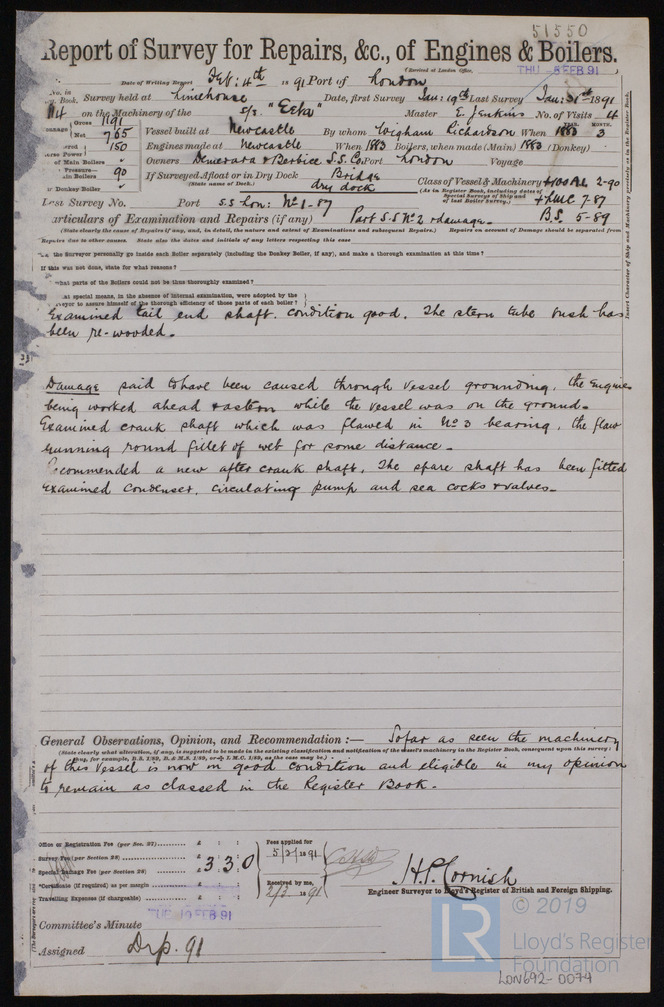 51550
Report of Survey for Repairs, &c., of Engines & Boilers.
(Received at London Office, THU 5 FEB 91
Date of Writing Report Feb: 4th 1891 Port of London
No. in Book. Survey held at Limehouse Date, first Survey Jan: 19th Last Survey Jan: 31st 1891
on the Machinery of the S/S "Eeba" Master E. Jenkins No. of Visits 4
Gross 1191
Net 765 Vessel built at Newcastle By whom Wigham Richardson When 1883 YEAR. MONTH. 3
150 Engines made at Newcastle When 1883 Boilers, when made (Main) 1883 (Donkey)
of Main Boilers Owners Demerara & Berbice S.S. Co Port London Voyage
Pressure— 90 If Surveyed Afloat or in Dry Dock Bridge dry dock Class of Vessel & Machinery +100A1 2-90
Main Boilers (State name of Dock.) (As in Register Book, including dates of Special Surveys of Ship and of last Boiler Survey.) +LMC 7-87
Donkey Boiler
Last Survey No. Port S.S Lon: No 1-87 B.S. 5-89
Particulars of Examination and Repairs (if any) Part S.S No 2 & damage.
(State clearly the cause of Repairs if any, and, in detail, the nature and extent of Examinations and subsequent Repairs.) Repairs on account of Damage should be separated from
Repairs due to other causes. State also the dates and initials of any letters respecting this case
the Surveyor personally go inside each Boiler separately (including the Donkey Boiler, if any), and make a thorough examination at this time?
If this was not done, state for what reasons?
what parts of the Boilers could not be thus thoroughly examined?
special means, in the absence of internal examination, were adopted by the
Surveyor to assure himself of the thorough efficiency of those parts of each boiler?
Insert Character of Ship and Machinery precisely as in the Register Book.
Examined tail end shaft. condition good. The stern tube bush has
been re-wooded.
Damage said to have been caused through vessel grounding, the Engines
being worked ahead & astern while the vessel was on the ground.
Examined crank shaft which was flawed in No 3 bearing, the flaw
running round fillet of web for some distance.
Recommended a new after crank shaft, The spare shaft has been fitted
Examined condenser, circulating pump and sea cocks & valves.
General Observations, Opinion, and Recommendation :— So far as seen the machinery
(State clearly what alteration, if any, is suggested to be made in the existing classification and notification of the vessel's machinery in the Register Book, consequent upon this survey;
thus, for example, B.S. 1/89, B. & M.S. 1/89, or + L.M.C. 1/89, as the case may be.)
of this vessel is now in good condition and eligible in my opinion
to remain as classed in the Register Book.
Office or Registration Fee (per Sec. 27) £ : : Fees applied for
Survey Fee (per Section 28) £ : : 5/2/1891
Special Damage Fee (per Section 28) £ 3 : 3 : 0
Certificate (if required) as per margin £ : : Received by me,
Travelling Expenses (if chargeable) £ : : 2/3 1891
H.P. Cornish
Engineer Surveyor to Lloyd's Register of British and Foreign Shipping.
TUE 10 FEB 91
Committee's Minute
Assigned
© 2019
LR
Lloyd's Register
Foundation
LON692-0074